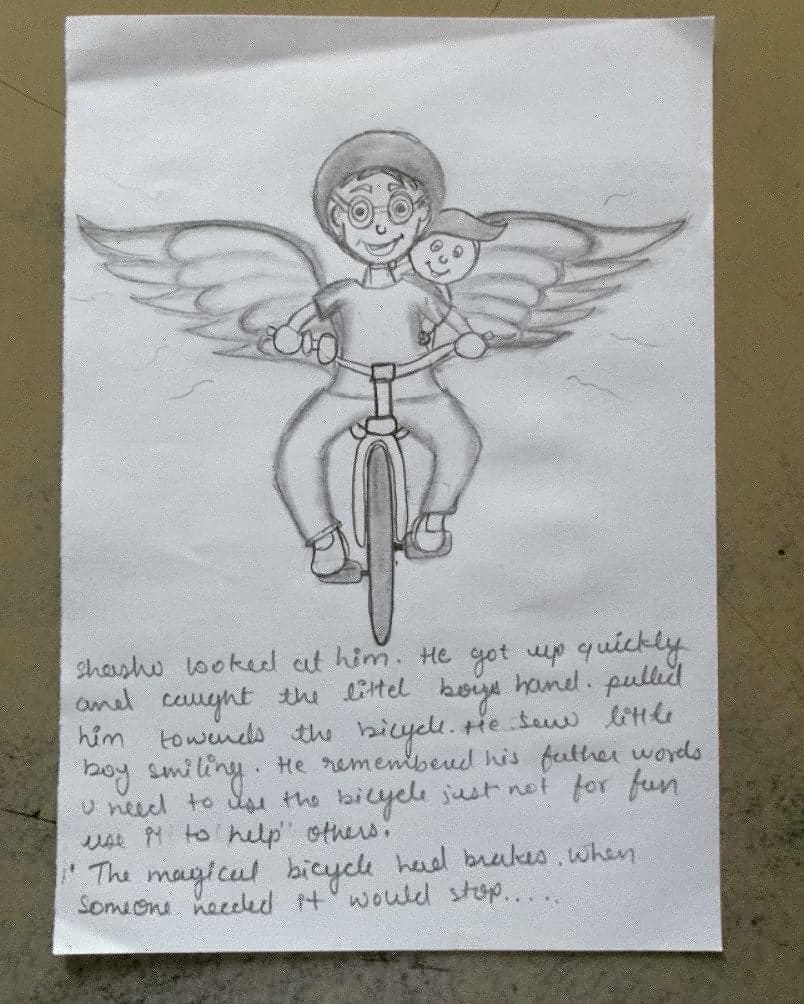 shashu looked at him. He got up quickly
and caught the littel boys hand. pulled
him towards the bicycle. He saw little
boy smiling. He rememberd his father words
u need to use the bicycle just not for fun
use it to "help" others.
" The magical bicycle had brakes. when
someone needed it would stop.....